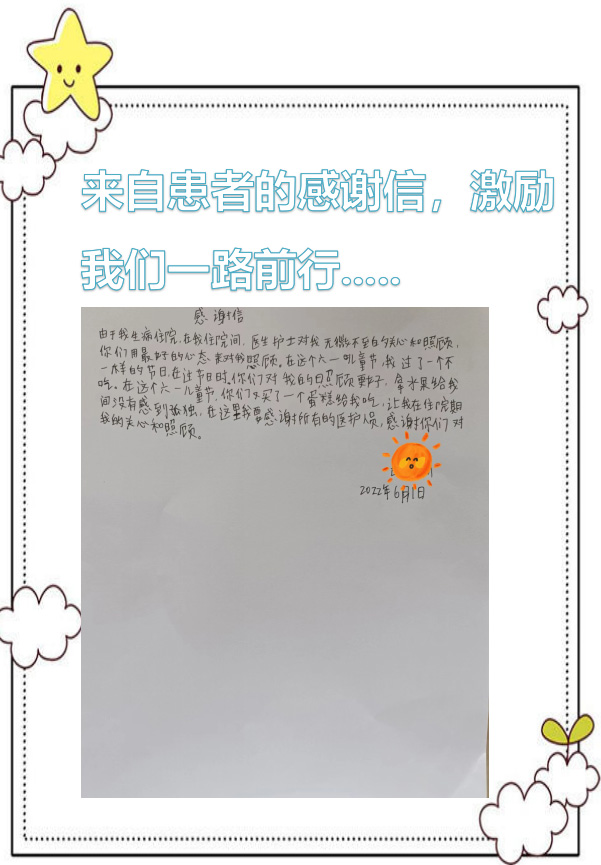 来自患者的感谢信，激励
我们一路前行.....
感谢信
由于我生病住院,在我住院间,医生护士对我无微不至的关心和照顾,
你们用最好的心态来对我照顾。在这个六一儿童节,我过了一个不
一样的节日,在过节日时,你们对我的照顾更好,拿水果给我
吃。在这个六一儿童节,你们又买了一个蛋糕给我吃,让我在住院期
间没有感到孤独,在这里我要感谢所有的医护人员,感谢你们对
我的关心和照顾。
2022年6月1日